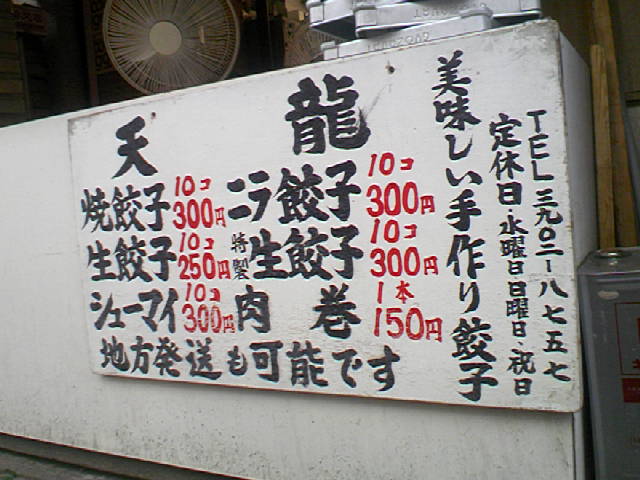 美味しい手作り餃子
定休日・水曜日日曜日・祝日
TEL三九〇二ー八七五七
天龍
焼餃子 10コ 300円 ニラ餃子 10コ 300円
生餃子 10コ 250円 特製生餃子 10コ 300円
シューマイ 10コ 300円 肉巻 1本 150円
地方発送も可能です